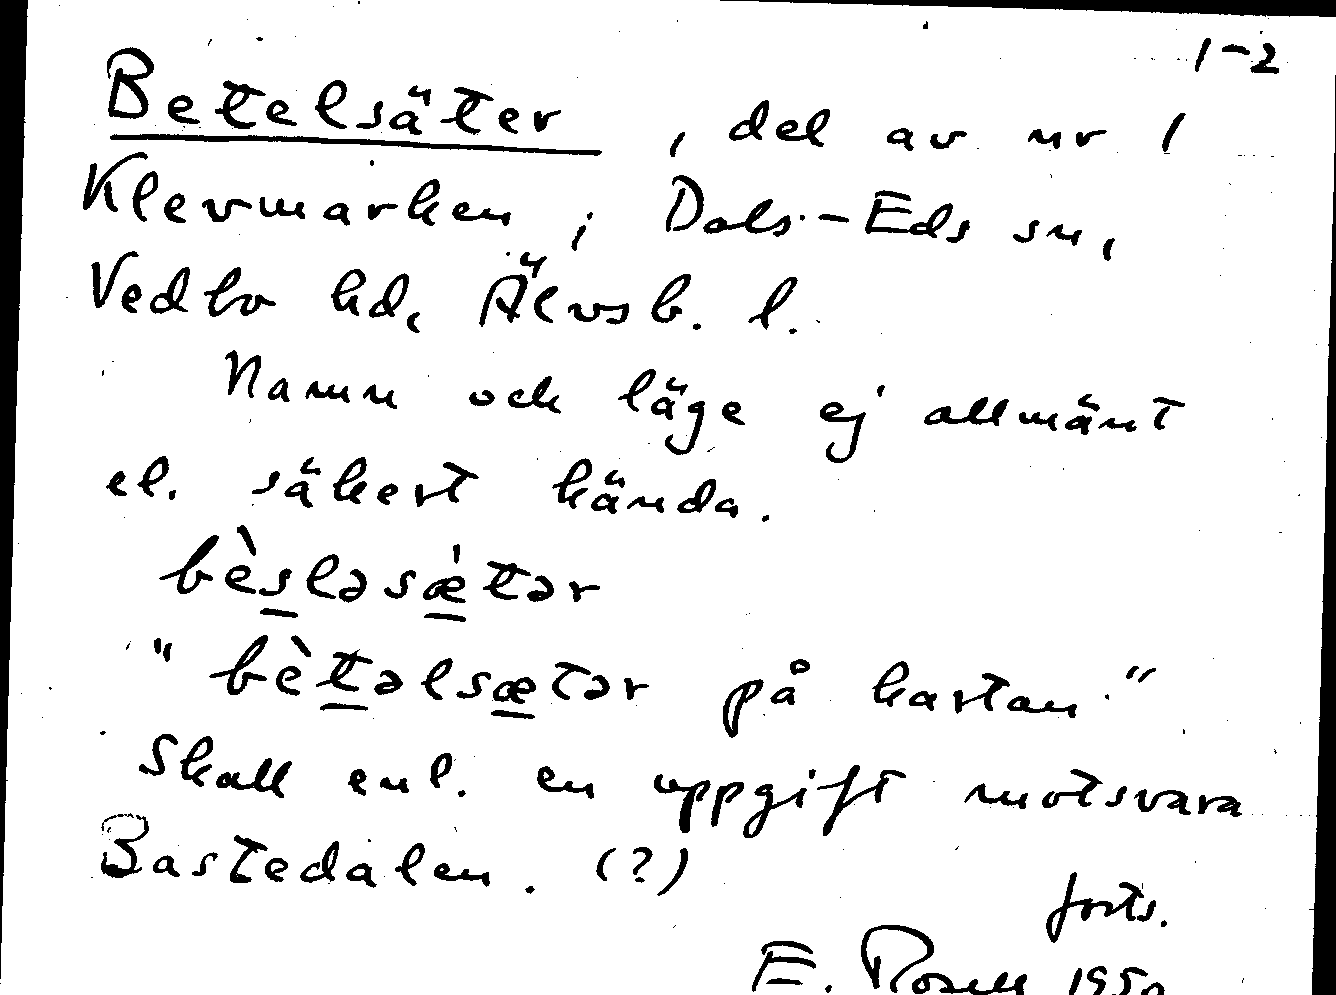 1-2
Betelsäter, del av nr 1
Klevmarken, Dals-Eds sn,
Vedbo hd, Älvsb. l.
Namn och läge ej allmänt
el. säkert kända.
bèsləsæ̀tər
"bètəlsætər på kartan."
Skall enl. en uppgift motsvara
Bastedalen. (?)
forts.
E. Rosell 1950